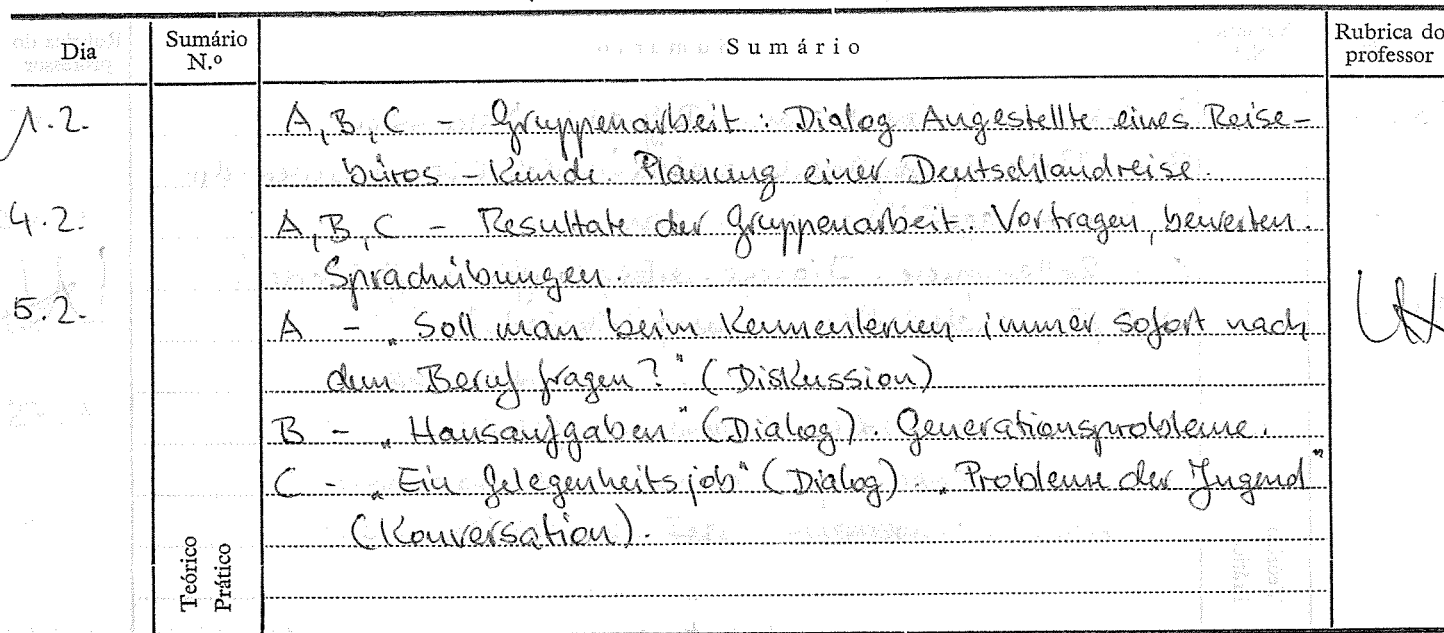 Dia Sumário N.º Sumário Rubrica do professor
1.2. A, B, C - Gruppenarbeit: Dialog Angestellte eines Reise-
büros - Kunde. Planung einer Deutschlandreise.
4.2. A, B, C - Resultate der Gruppenarbeit. Vortragen, bewerten.
Sprachübungen.
5.2. A - „Soll man beim Kennenlernen immer sofort nach
dem Beruf fragen?" (Diskussion)
B - „Hausaufgaben" (Dialog). Generationsprobleme.
C - „Ein Gelegenheitsjob" (Dialog). „Probleme der Jugend"
(Konversation).
Teórico
Prático